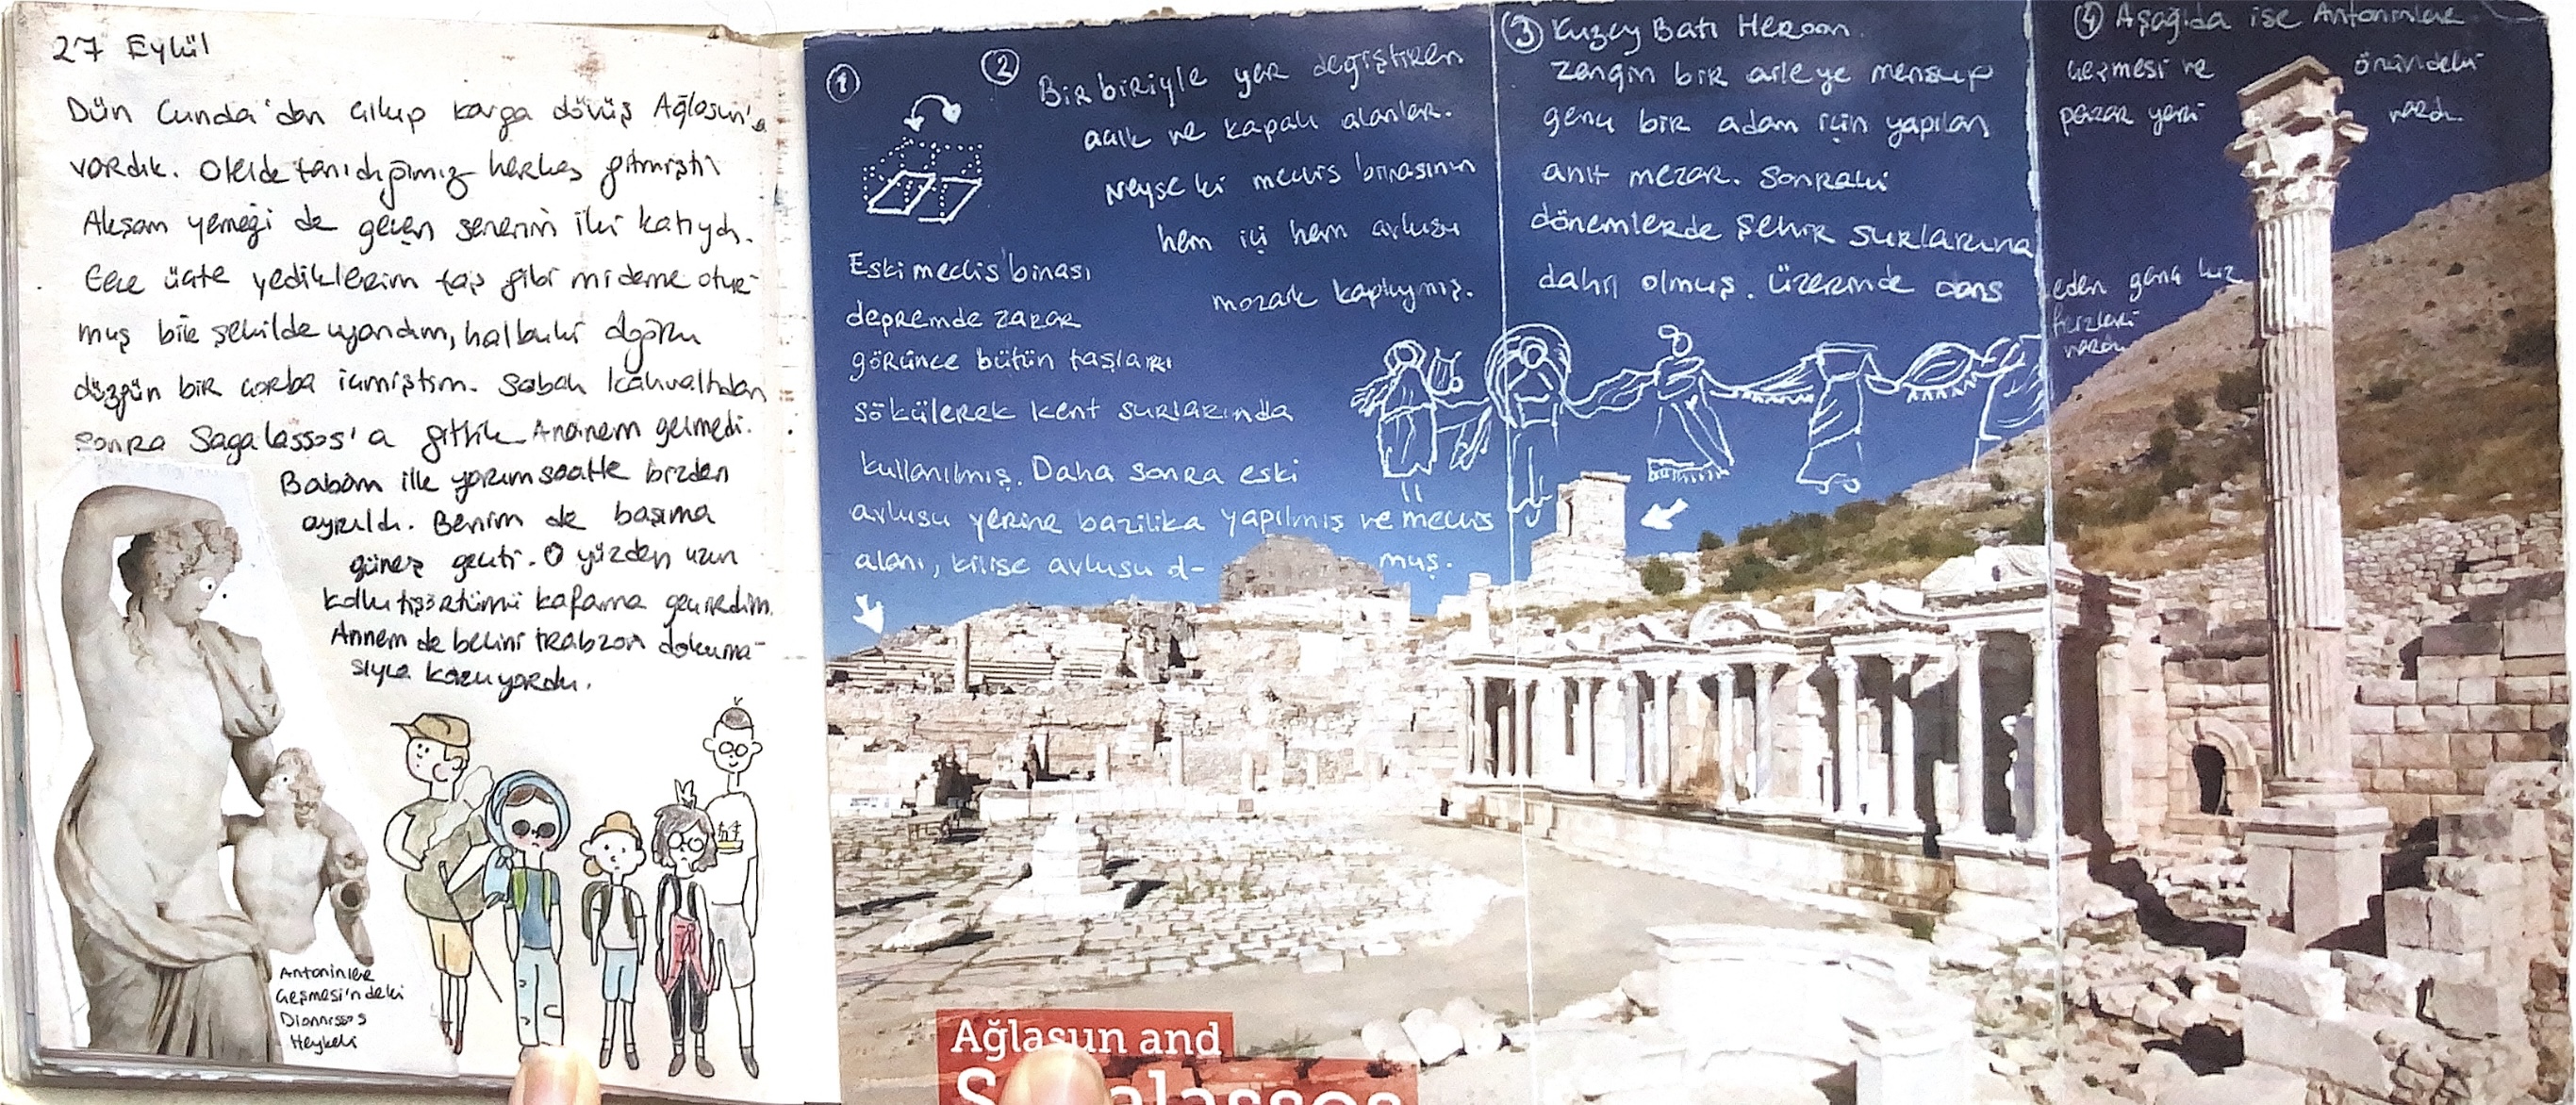 27 Eylül
Dün Cunda'dan çıkıp karga dövüş Ağlasun'a
vardık. Otelde tanıdığımız herkes gitmişti
Akşam yemeği de geçen senenin iki katıydı.
Gece üçte yediklerim taş gibi mideme otur-
muş bir şekilde uyandım, halbuki doğru
düzgün bir çorba içmiştim. Sabah kahvaltıdan
sonra Sagalassos'a gittik Anânem gelmedi.
Babam ilk yarım saatte bizden
ayrıldı. Benim de başıma
güneş geçti. O yüzden uzun
kollu tişörtümü kafama geçirdim.
Annem de belini trabzon dokuma-
sıyla koruyordu.
Antoninler
Çeşmesi'ndeki
Dionnisos
Heykeli
①
Eski meclis binası
depremde zarar
görünce bütün taşları
sökülerek kent surlarında
kullanılmış. Daha sonra eski
avlusu yerine bazilika yapılmış ve meclis
alanı, kilise avlusu o- muş.
② Birbiriyle yer değiştiren
açık ve kapalı alanlar.
Neyse ki meclis binasının
hem içi hem avlusu
mozaik kaplıymış.
③ Kuzey Batı Heroon.
zengin bir aileye mensup
genç bir adam için yapılan
anıt mezar. Sonraki
dönemlerde şehir surlarına
dahil olmuş. Üzerinde dans
eden genç kız
frizleri
vardı
④ Aşağıda ise Antoninler
Çeşmesi ve önündeki
pazar yeri vardı.
Ağlasun and